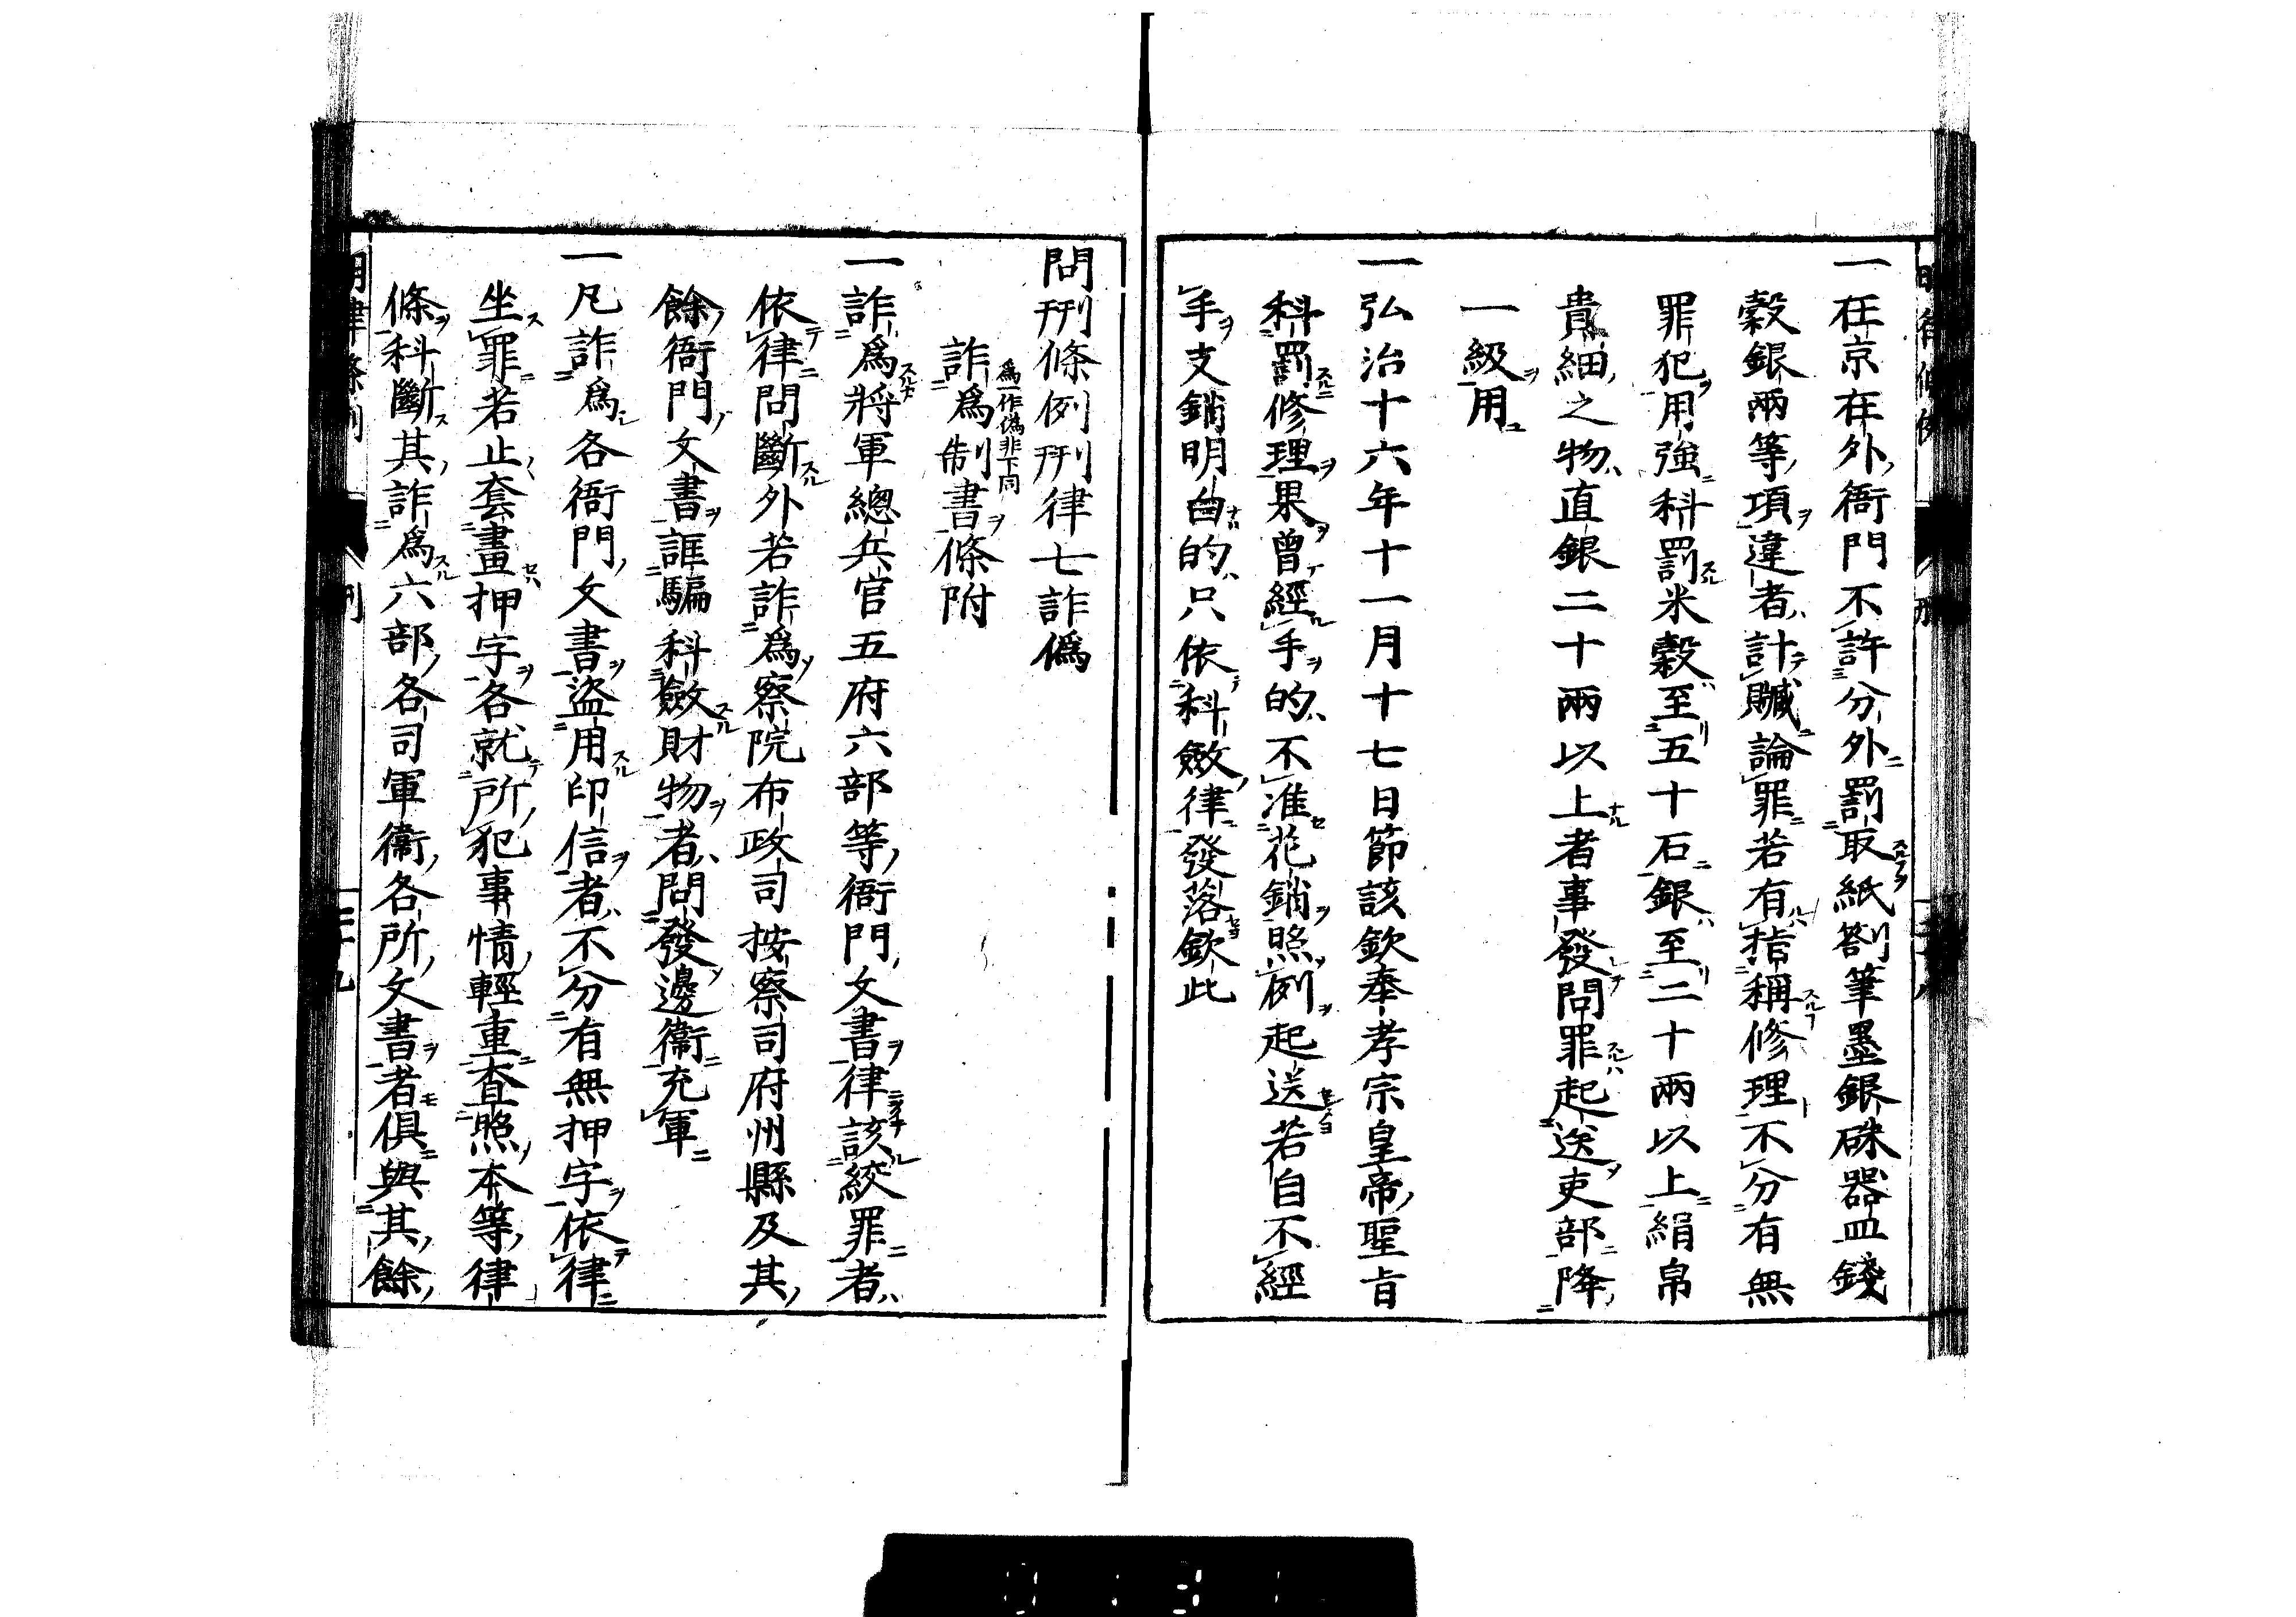 一在京在外衙門不許分外罰取紙劄筆墨銀硃器皿錢
穀銀兩等項違者計贓論罪若有指稱修理不分有無
罪犯用強科罰米穀至五十石銀至二十兩以上絹帛
貴細之物直銀二十兩以上者事發問罪起送吏部降
一級用
一弘治十六年十一月十七日節該欽奉孝宗皇帝聖旨
科罰修理果曾經手的不准花銷照例起送若自不經
手支銷明白的只依科斂律發落欽此
問刑條例刑律七詐偽
詐爲制書條附
爲一作偽非下同
一詐爲將軍總兵官五府六部等衙門文書律該絞罪者
依律問斷外若詐爲察院布政司按察司府州縣及其
餘衙門文書誆騙科斂財物者問發邊衞充軍
一凡詐爲各衙門文書盜用印信者不分有無押字依律
坐罪若止套畫押字各就所犯事情輕重查照本等律
條科斷其詐爲六部各司軍衞各所文書者俱與其餘